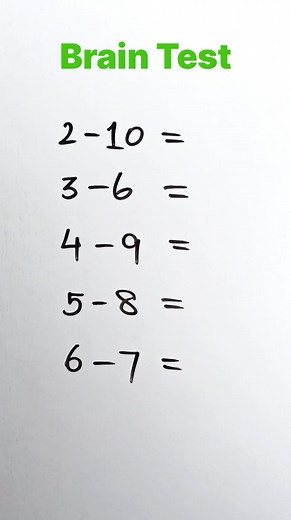 Brain Test
2-10 =
3-6 =
4-9 =
5-8 =
6-7 =